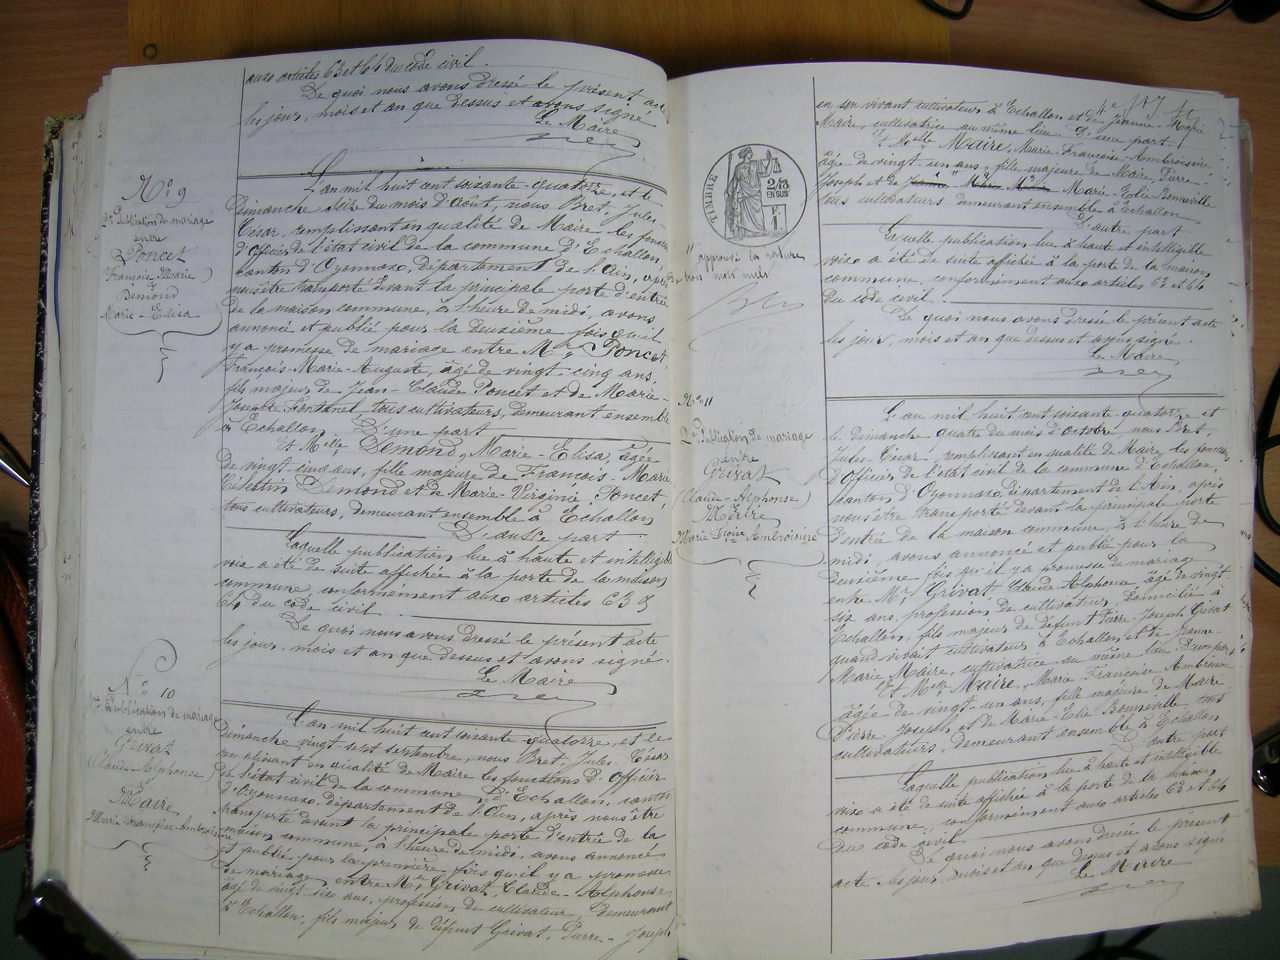 aux articles 63 et 64 du code civil.
De quoi nous avons dressé le présent acte
les jour, mois et an que dessus et avons signé
Le Maire
N° 9
2e Publication de mariage
entre
Poncet
(François-Marie)
&
Demond
Marie-Elisa
L'an mil huit cent soixante-quatorze, et le
Dimanche seize du mois d'Août, nous Bret, Jules-
César, remplissant en qualité de Maire les fonctions
d'Officier de l'état civil de la commune d'Echallon,
canton d'Oyonnax, département de l'Ain, après
nous être transporté devant la principale porte d'entrée
de la maison commune, à l'heure de midi, avons
annoncé et publié pour la deuxième fois qu'il
y a promesse de mariage entre Mr Poncet,
François-Marie-Auguste, âgé de vingt-cinq ans,
fils majeur de Jean-Claude Poncet et de Marie-
Fontanel, tous cultivateurs, demeurant ensemble
à Echallon D'une part
Et Melle Demond, Marie-Elisa, âgée
de vingt-cinq ans, fille majeure de François-Marie
Célestin Demond et de Marie-Virginie Poncet,
tous cultivateurs, demeurant ensemble à Echallon
D'autre part
Laquelle publication lue à haute et intelligible
voix a été de suite affichée à la porte de la maison
commune, conformément aux articles 63 &
64 du code civil
De quoi nous avons dressé le présent acte
les jour, mois et an que dessus et avons signé.
Le Maire
N° 10
1re Publication de mariage
entre
Grivat
(Claude-Alphonse)
&
Maire
Marie-Françoise-Ambroisine
L'an mil huit cent soixante quatorze, et le
Dimanche vingt-sept septembre, nous Bret, Jules-César
remplissant en qualité de Maire les fonctions d'Officier
de l'état civil de la commune d'Echallon, canton
d'Oyonnax, département de l'Ain, après nous être
transporté devant la principale porte d'entrée de la
maison commune, à l'heure de midi, avons annoncé
et publié pour la première fois qu'il y a promesse
de mariage entre Mr Grivat, Claude-Alphonse,
âgé de vingt six ans, profession de cultivateur, demeurant
à Echallon, fils majeur de défunt Grivat, Pierre-Joseph
en son vivant cultivateur à Echallon et de Jeanne-Marie
Maire, cultivatrice au même lieu D'une part
Et Melle Maire, Marie-Françoise-Ambroisine
âgée de vingt un ans, fille majeure de Maire, Pierre-
Joseph et de Marie-Elie Bonneville
tous cultivateurs demeurant ensemble à Echallon
D'autre part
Laquelle publication lue à haute et intelligible
voix a été de suite affichée à la porte de la maison
commune, conformément aux articles 63 et 64
du code civil
De quoi nous avons dressé le présent acte
les jour, mois et an que dessus et avons signé.
Le Maire
TIMBRE
2/10
EN SUS
F.
1
approuvé la rature
de trois mots nuls
N° 11
2e Publication de mariage
entre
Grivat
(Claude-Alphonse)
Maire
Marie Fçoise Ambroisine
L'an mil huit cent soixante-quatorze et
le Dimanche quatre du mois d'octobre nous Bret,
Jules-César, remplissant en qualité de Maire, les fonctions
d'Officier de l'état civil de la commune d'Echallon,
canton d'Oyonnax, département de l'Ain, après
nous être transporté devant la principale porte
d'entrée de la maison commune, à l'heure de
midi, avons annoncé et publié pour la
deuxième fois qu'il y a promesse de mariage
entre Mr Grivat Claude Alphonse âgé de vingt
six ans, profession de cultivateur, domicilié à
Echallon, fils majeur de défunt Pierre-Joseph Grivat
quand vivait cultivateur à Echallon et de Jeanne-
Marie Maire, cultivatrice au même lieu D'une part
Et Melle Maire, Marie Françoise Ambroisine
âgée de vingt un ans, fille majeure de Maire
Pierre-Joseph, et de Marie-Elie Bonneville tous
cultivateurs, demeurant ensemble à Echallon
D'autre part
Laquelle publication lue à haute et intelligible
voix a été de suite affichée à la porte de la maison
commune, conformément aux articles 63 et 64
du code civil
De quoi nous avons dressé le présent
acte les jour, mois et an que dessus et avons signé
Le Maire